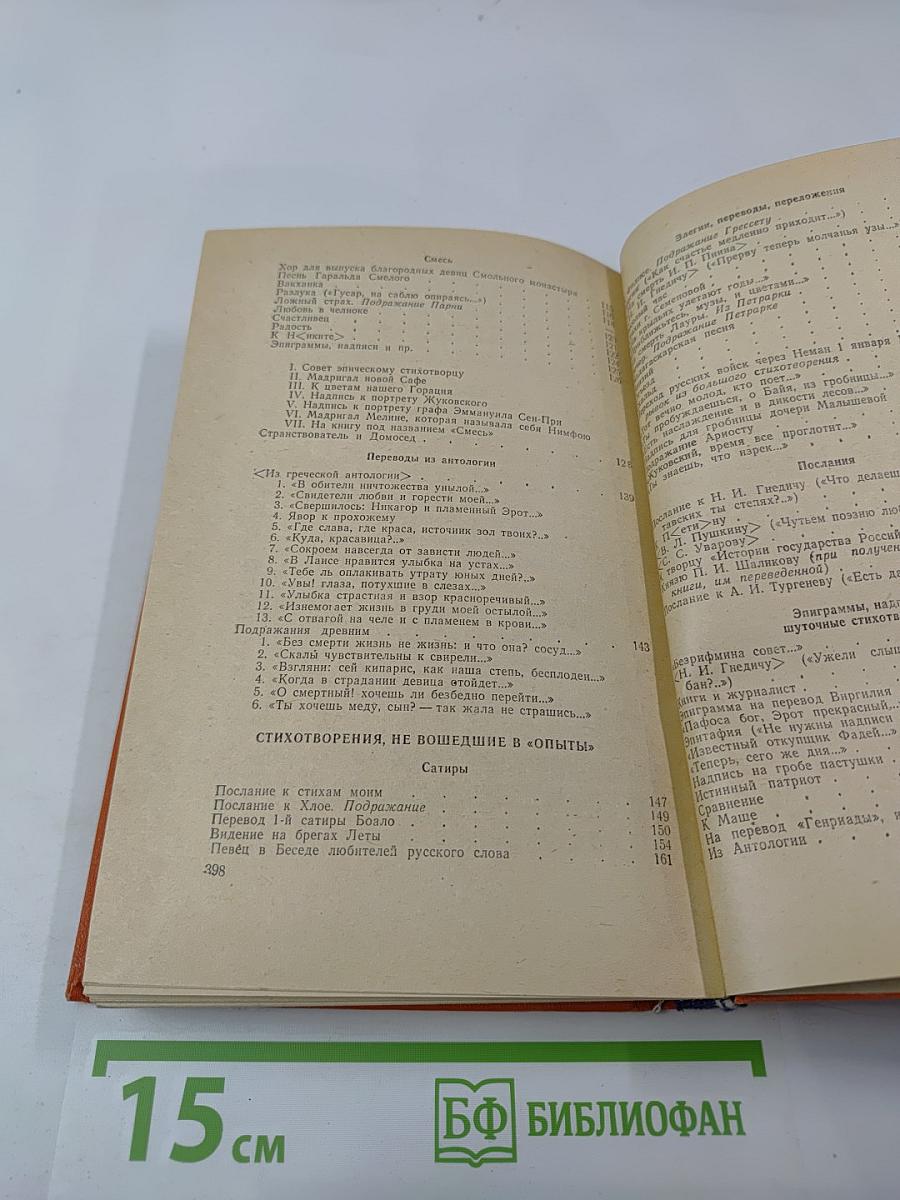 Смесь
Хор для выпуска благородных девиц Смольного монастыря
Песнь Гаральда Смелого
Вакханка
Разлука («Гусар, на саблю опираясь...»)
Ложный страх. Подражание Парни
Любовь в челноке
Счастливец
Радость
К Н<иките>
Эпиграммы, надписи и пр.
I. Совет эпическому стихотворцу
II. Мадригал новой Сафе
III. К цветам нашего Горация
IV. Надпись к портрету Жуковского
V. Надпись к портрету графа Эммануила Сен-При
VI. Мадригал Мелине, которая называла себя Нимфою
VII. На книгу под названием «Смесь»
Странствователь и Домосед . . 128
Переводы из антологии
<Из греческой антологии> . . 139
1. «В обители ничтожества унылой...»
2. «Свидетели любви и горести моей...»
3. «Свершилось: Никагор и пламенный Эрот...»
4. Явор к прохожему
5. «Где слава, где краса, источник зол твоих?..»
6. «Куда, красавица?..»
7. «Сокроем навсегда от зависти людей...»
8. «В Лаисе нравится улыбка на устах...»
9. «Тебе ль оплакивать утрату юных дней?..»
10. «Увы! глаза, потухшие в слезах...»
11. «Улыбка страстная и взор красноречивый...»
12. «Изнемогает жизнь в груди моей остылой...»
13. «С отвагой на челе и с пламенем в крови...»
Подражания древним . . 143
1. «Без смерти жизнь не жизнь: и что она? сосуд...»
2. «Скалы чувствительны к свирели...»
3. «Взгляни: сей кипарис, как наша степь, бесплоден...»
4. «Когда в страдании девица отойдет...»
5. «О смертный! хочешь ли безбедно перейти...»
6. «Ты хочешь меду, сын? — так жала не страшись...»
СТИХОТВОРЕНИЯ, НЕ ВОШЕДШИЕ В «ОПЫТЫ»
Сатиры
Послание к стихам моим . . 147
Послание к Хлое. Подражание . . 149
Перевод 1-й сатиры Боало . . 150
Видение на брегах Леты . . 154
Певец в Беседе любителей русского слова . . 161
398
Элегии, переводы, переложения
Подражание Грессету
(«Как счастье медленно приходит...»)
смерть И. П. Пнина>
Гнедичу> («Прерву теперь молчанья узы...»
час
г. Семеновой
крыльях улетают годы...»
музы, и цветами...»
смерть Лауры. Из Петрарки
Подражание Петрарке
песня
русских войск через Неман 1 января
из большого стихотворения
вечно молод, кто поет...»
пробуждаешься, о Байя, из гробницы...»
наслаждение и в дикости лесов...»
для гробницы дочери Малышевой
Подражание Ариосту
Жуковский, время все проглотит...»
Ты знаешь, что изрек...»
Послания
Послание к Н. И. Гнедичу («Что делаешь
тавских ты степях?..»)
П<ети>ну
В. Л. Пушкину> («Чутьем поэзию
С. С. Уварову>
творцу «Истории государства
Князю П. И. Шаликову (при
книги, им переведенной)
Послание к А. И. Тургеневу («Есть
Эпиграммы,
шуточные
Безрифмина совет...»
<Н. И. Гнедичу> («Ужели
бан?..»)
Книги и журналист
Эпиграмма на перевод Виргилия
«Пафоса бог, Эрот прекрасный...»
Эпитафия («Не нужны надписи
«Известный откупщик Фадей...»
«Теперь, сего же дня...»
Надпись на гробе пастушки
Истинный патриот
Сравнение
К Маше
На перевод «Генриады»,
Из Антологии
15 см
БФ БИБЛИОФАН